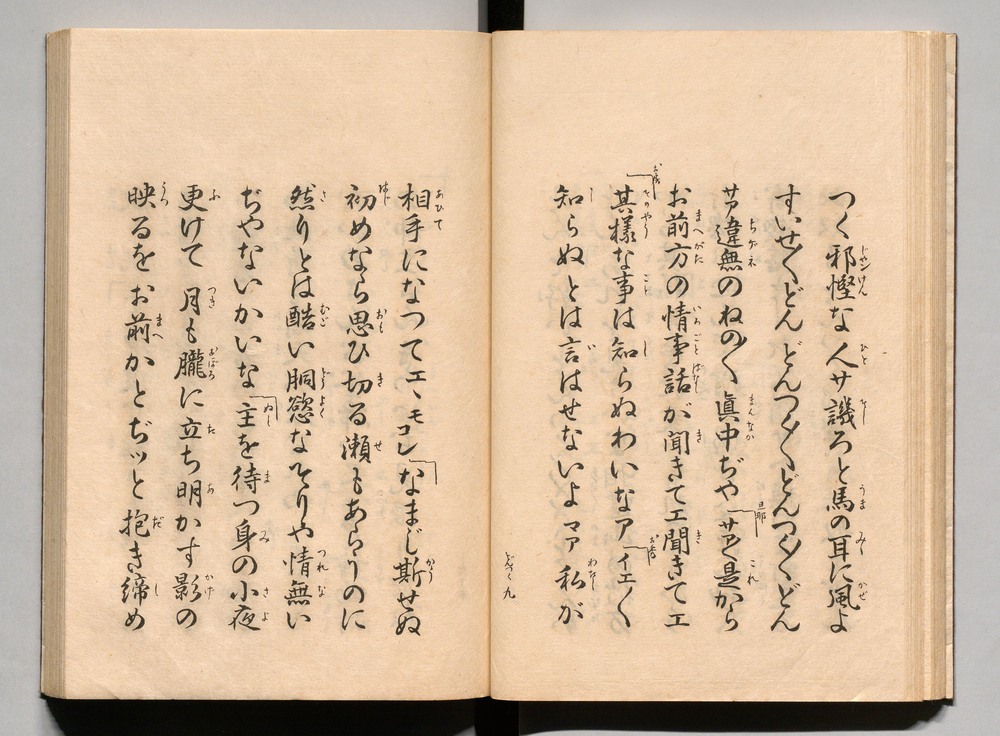 つく邪慳な人サ譏ろと馬の耳に風よ
すいせ〱どんどんつく〱どんつく〱どん
サア違無のねの〱眞中ぢやサア〱是から
お前方の情事話が聞きてエ聞きてエ
其樣な事は知らぬわいなアイエ〱
知らぬとは言はせないよマア私が
どんつく 九
相手になつてエ、モコレなまじ斯せぬ
初めなら思ひ切る瀬もあらうのに
然りとは酷い胴慾なそりや情無い
ぢやないかいな主を待つ身の小夜
更けて月も朧に立ち明かす影の
映るをお前かとぢッと抱き締め